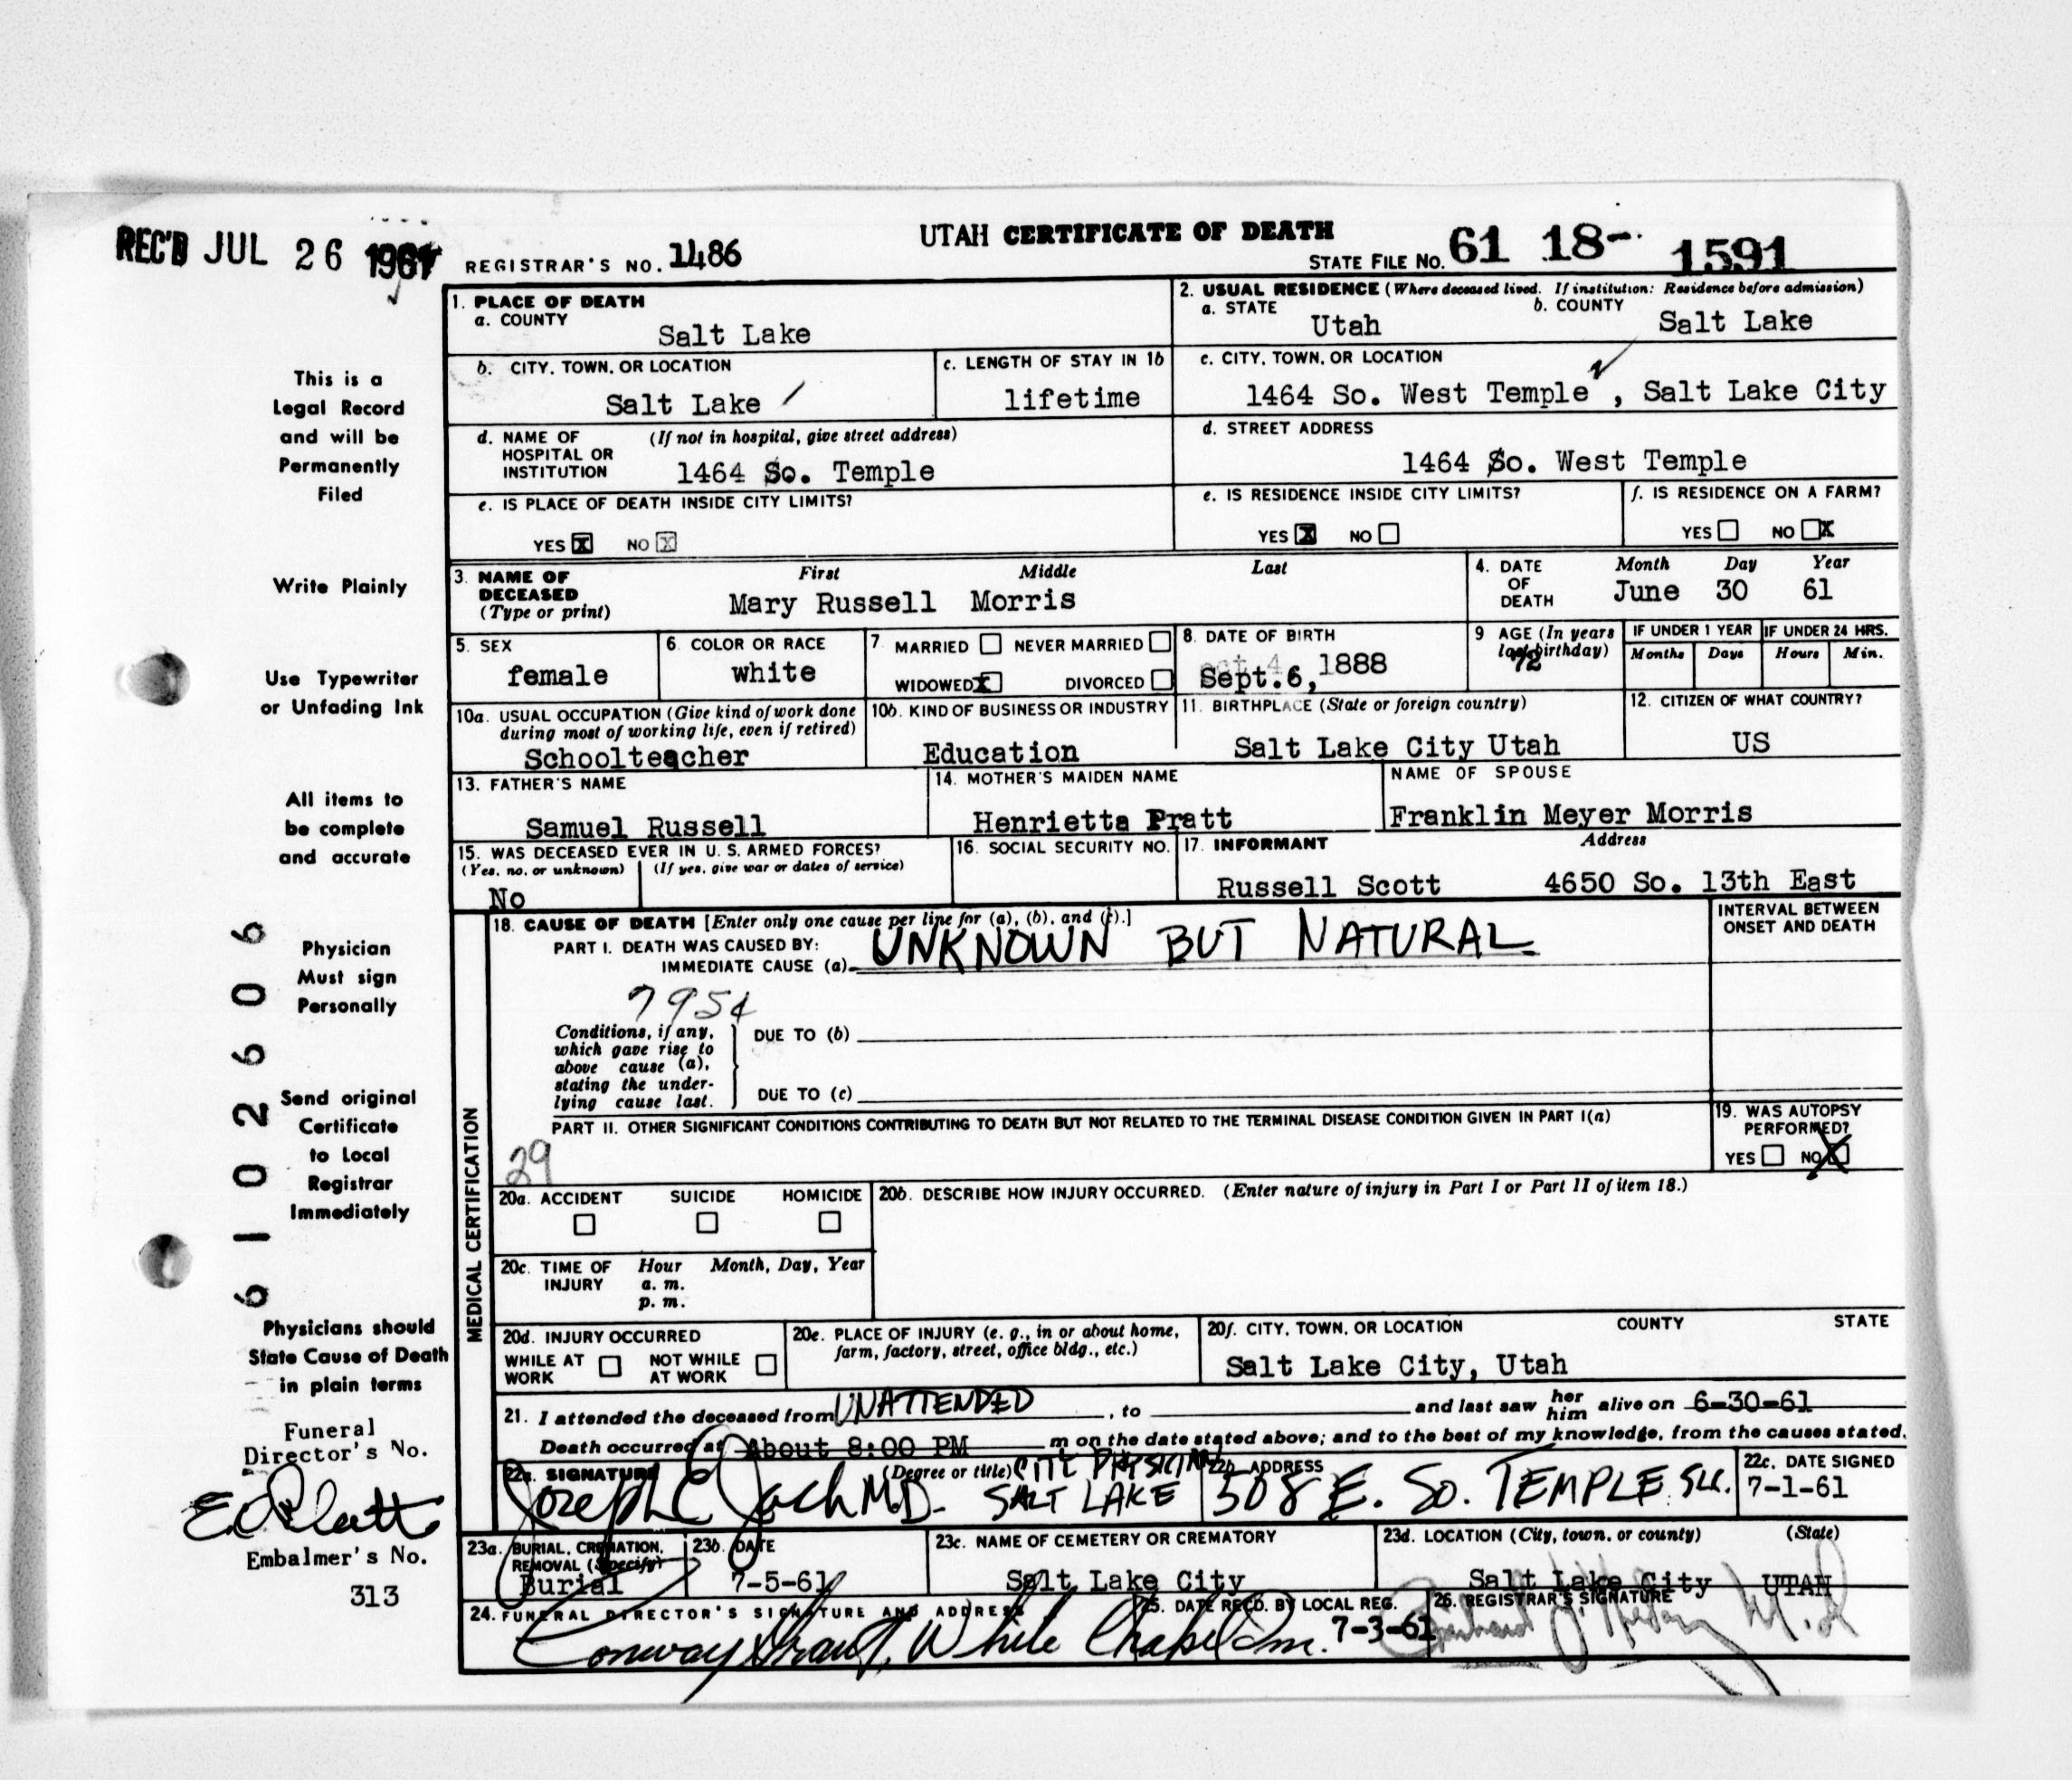 UTAH CERTIFICATE OF DEATH
REC'D JUL 26 1961 REGISTRAR'S NO. 1486 STATE FILE No. 61 18- 1591
1. PLACE OF DEATH
a. COUNTY
Salt Lake
2. USUAL RESIDENCE (Where deceased lived. If institution: Residence before admission)
a. STATE
Utah
b. COUNTY
Salt Lake
b. CITY, TOWN, OR LOCATION
Salt Lake
c. LENGTH OF STAY IN 1b
lifetime
c. CITY, TOWN, OR LOCATION
1464 So. West Temple , Salt Lake City
d. NAME OF HOSPITAL OR INSTITUTION (If not in hospital, give street address)
1464 So. Temple
d. STREET ADDRESS
1464 So. West Temple
e. IS PLACE OF DEATH INSIDE CITY LIMITS?
YES X NO X
e. IS RESIDENCE INSIDE CITY LIMITS?
YES X NO
f. IS RESIDENCE ON A FARM?
YES NO X
3. NAME OF DECEASED (Type or print)
First Middle Last
Mary Russell Morris
4. DATE OF DEATH
Month Day Year
June 30 61
5. SEX
female
6. COLOR OR RACE
white
7. MARRIED NEVER MARRIED
WIDOWED X DIVORCED
8. DATE OF BIRTH
Sept.6, 1888
9 AGE (In years last birthday)
72
IF UNDER 1 YEAR
Months Days
IF UNDER 24 HRS.
Hours Min.
10a. USUAL OCCUPATION (Give kind of work done during most of working life, even if retired)
Schoolteacher
10b. KIND OF BUSINESS OR INDUSTRY
Education
11. BIRTHPLACE (State or foreign country)
Salt Lake City Utah
12. CITIZEN OF WHAT COUNTRY?
US
13. FATHER'S NAME
Samuel Russell
14. MOTHER'S MAIDEN NAME
Henrietta Pratt
NAME OF SPOUSE
Franklin Meyer Morris
15. WAS DECEASED EVER IN U. S. ARMED FORCES?
(Yes, no, or unknown) (If yes, give war or dates of service)
No
16. SOCIAL SECURITY NO.
17. INFORMANT Address
Russell Scott 4650 So. 13th East
MEDICAL CERTIFICATION
18. CAUSE OF DEATH [Enter only one cause per line for (a), (b), and (c).]
PART I. DEATH WAS CAUSED BY:
IMMEDIATE CAUSE (a) UNKNOWN BUT NATURAL
INTERVAL BETWEEN ONSET AND DEATH
Conditions, if any, which gave rise to above cause (a), stating the underlying cause last.
DUE TO (b)
DUE TO (c)
PART II. OTHER SIGNIFICANT CONDITIONS CONTRIBUTING TO DEATH BUT NOT RELATED TO THE TERMINAL DISEASE CONDITION GIVEN IN PART I(a)
29
19. WAS AUTOPSY PERFORMED?
YES NO X
20a. ACCIDENT SUICIDE HOMICIDE
20b. DESCRIBE HOW INJURY OCCURRED. (Enter nature of injury in Part I or Part II of item 18.)
20c. TIME OF INJURY
Hour Month, Day, Year
a. m.
p. m.
20d. INJURY OCCURRED
WHILE AT WORK NOT WHILE AT WORK
20e. PLACE OF INJURY (e. g., in or about home, farm, factory, street, office bldg., etc.)
20f. CITY, TOWN, OR LOCATION COUNTY STATE
Salt Lake City, Utah
21. I attended the deceased from UNATTENDED , to and last saw her him alive on 6-30-61
Death occurred at About 8:00 PM m on the date stated above; and to the best of my knowledge, from the causes stated.
22a. SIGNATURE (Degree or title)
Joseph C Jach M.D. CITY PHYSICIAN
SALT LAKE
22b. ADDRESS
508 E. So. TEMPLE SLC.
22c. DATE SIGNED
7-1-61
23a. BURIAL, CREMATION, REMOVAL (Specify)
Burial
23b. DATE
7-5-61
23c. NAME OF CEMETERY OR CREMATORY
Salt Lake City
23d. LOCATION (City, town, or county) (State)
Salt Lake City UTAH
24. FUNERAL DIRECTOR'S SIGNATURE AND ADDRESS
White Chapel
25. DATE RECD. BY LOCAL REG.
7-3-61
26. REGISTRAR'S SIGNATURE
This is a
Legal Record
and will be
Permanently
Filed
Write Plainly
Use Typewriter
or Unfading Ink
All items to
be complete
and accurate
Physician
Must sign
Personally
Send original
Certificate
to Local
Registrar
Immediately
Physicians should
State Cause of Death
in plain terms
Funeral
Director's No.
Embalmer's No.
313
6102606